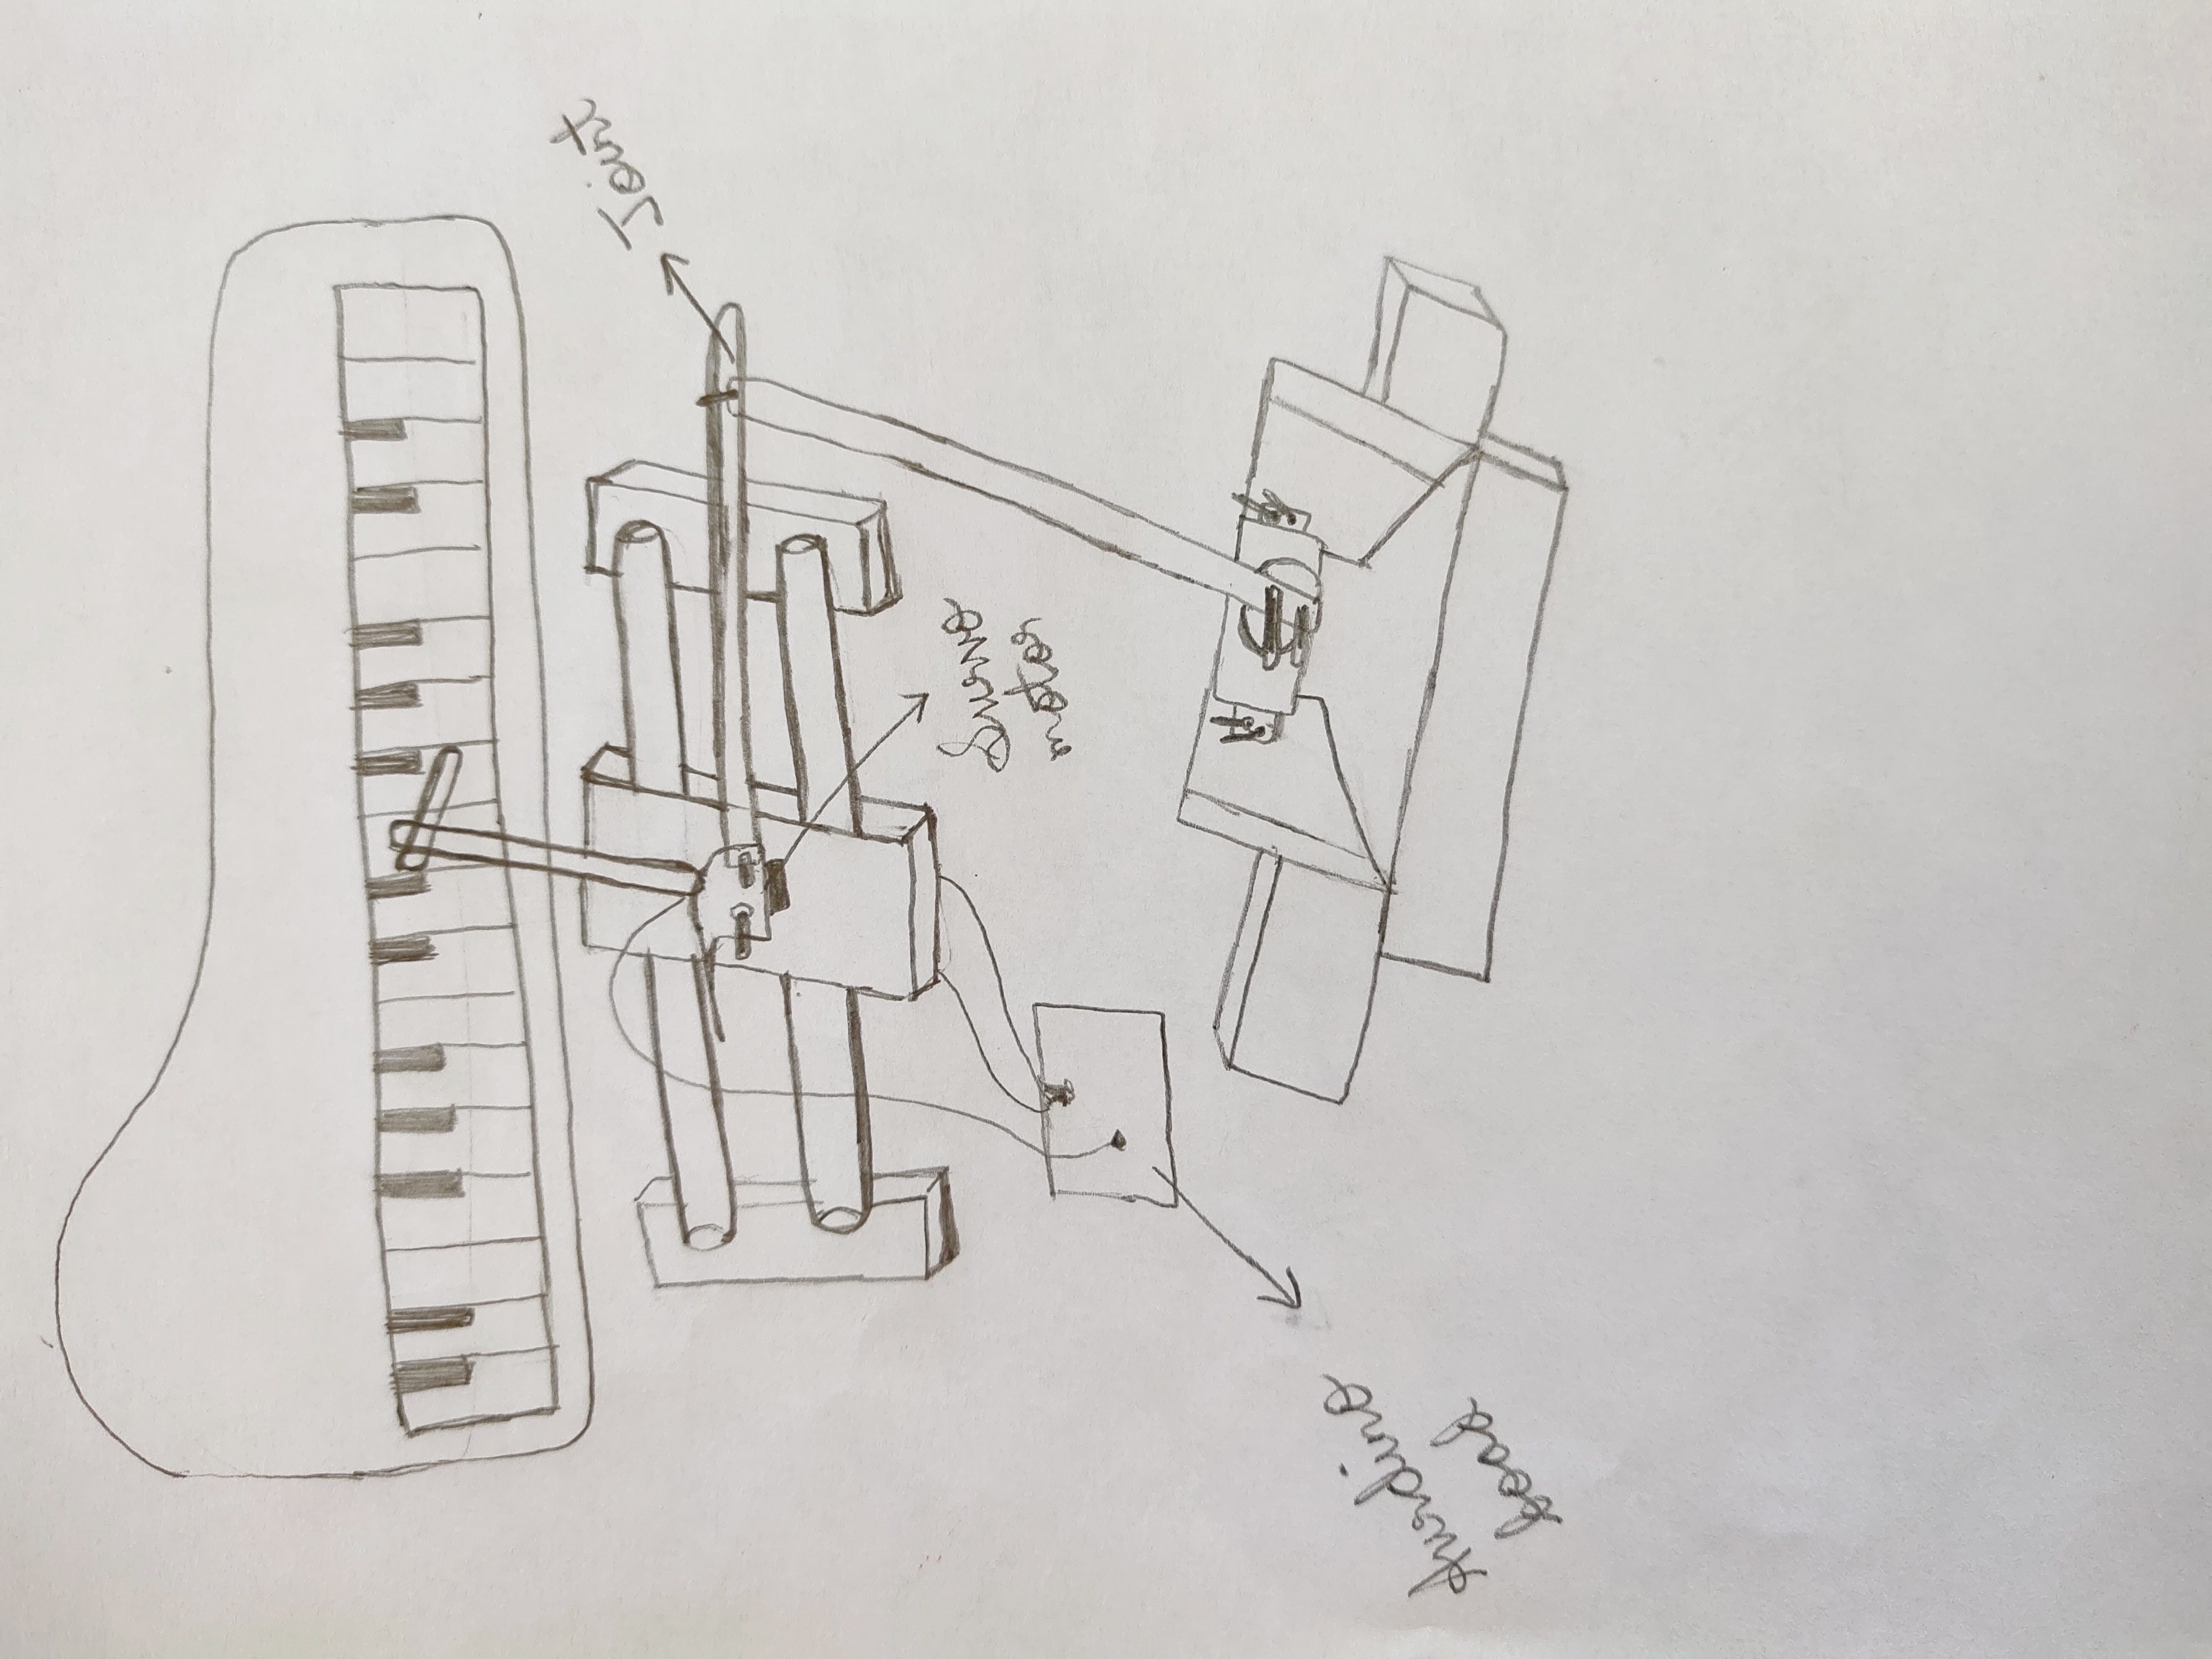 Joint
Survo
motor
Aurdino
boad